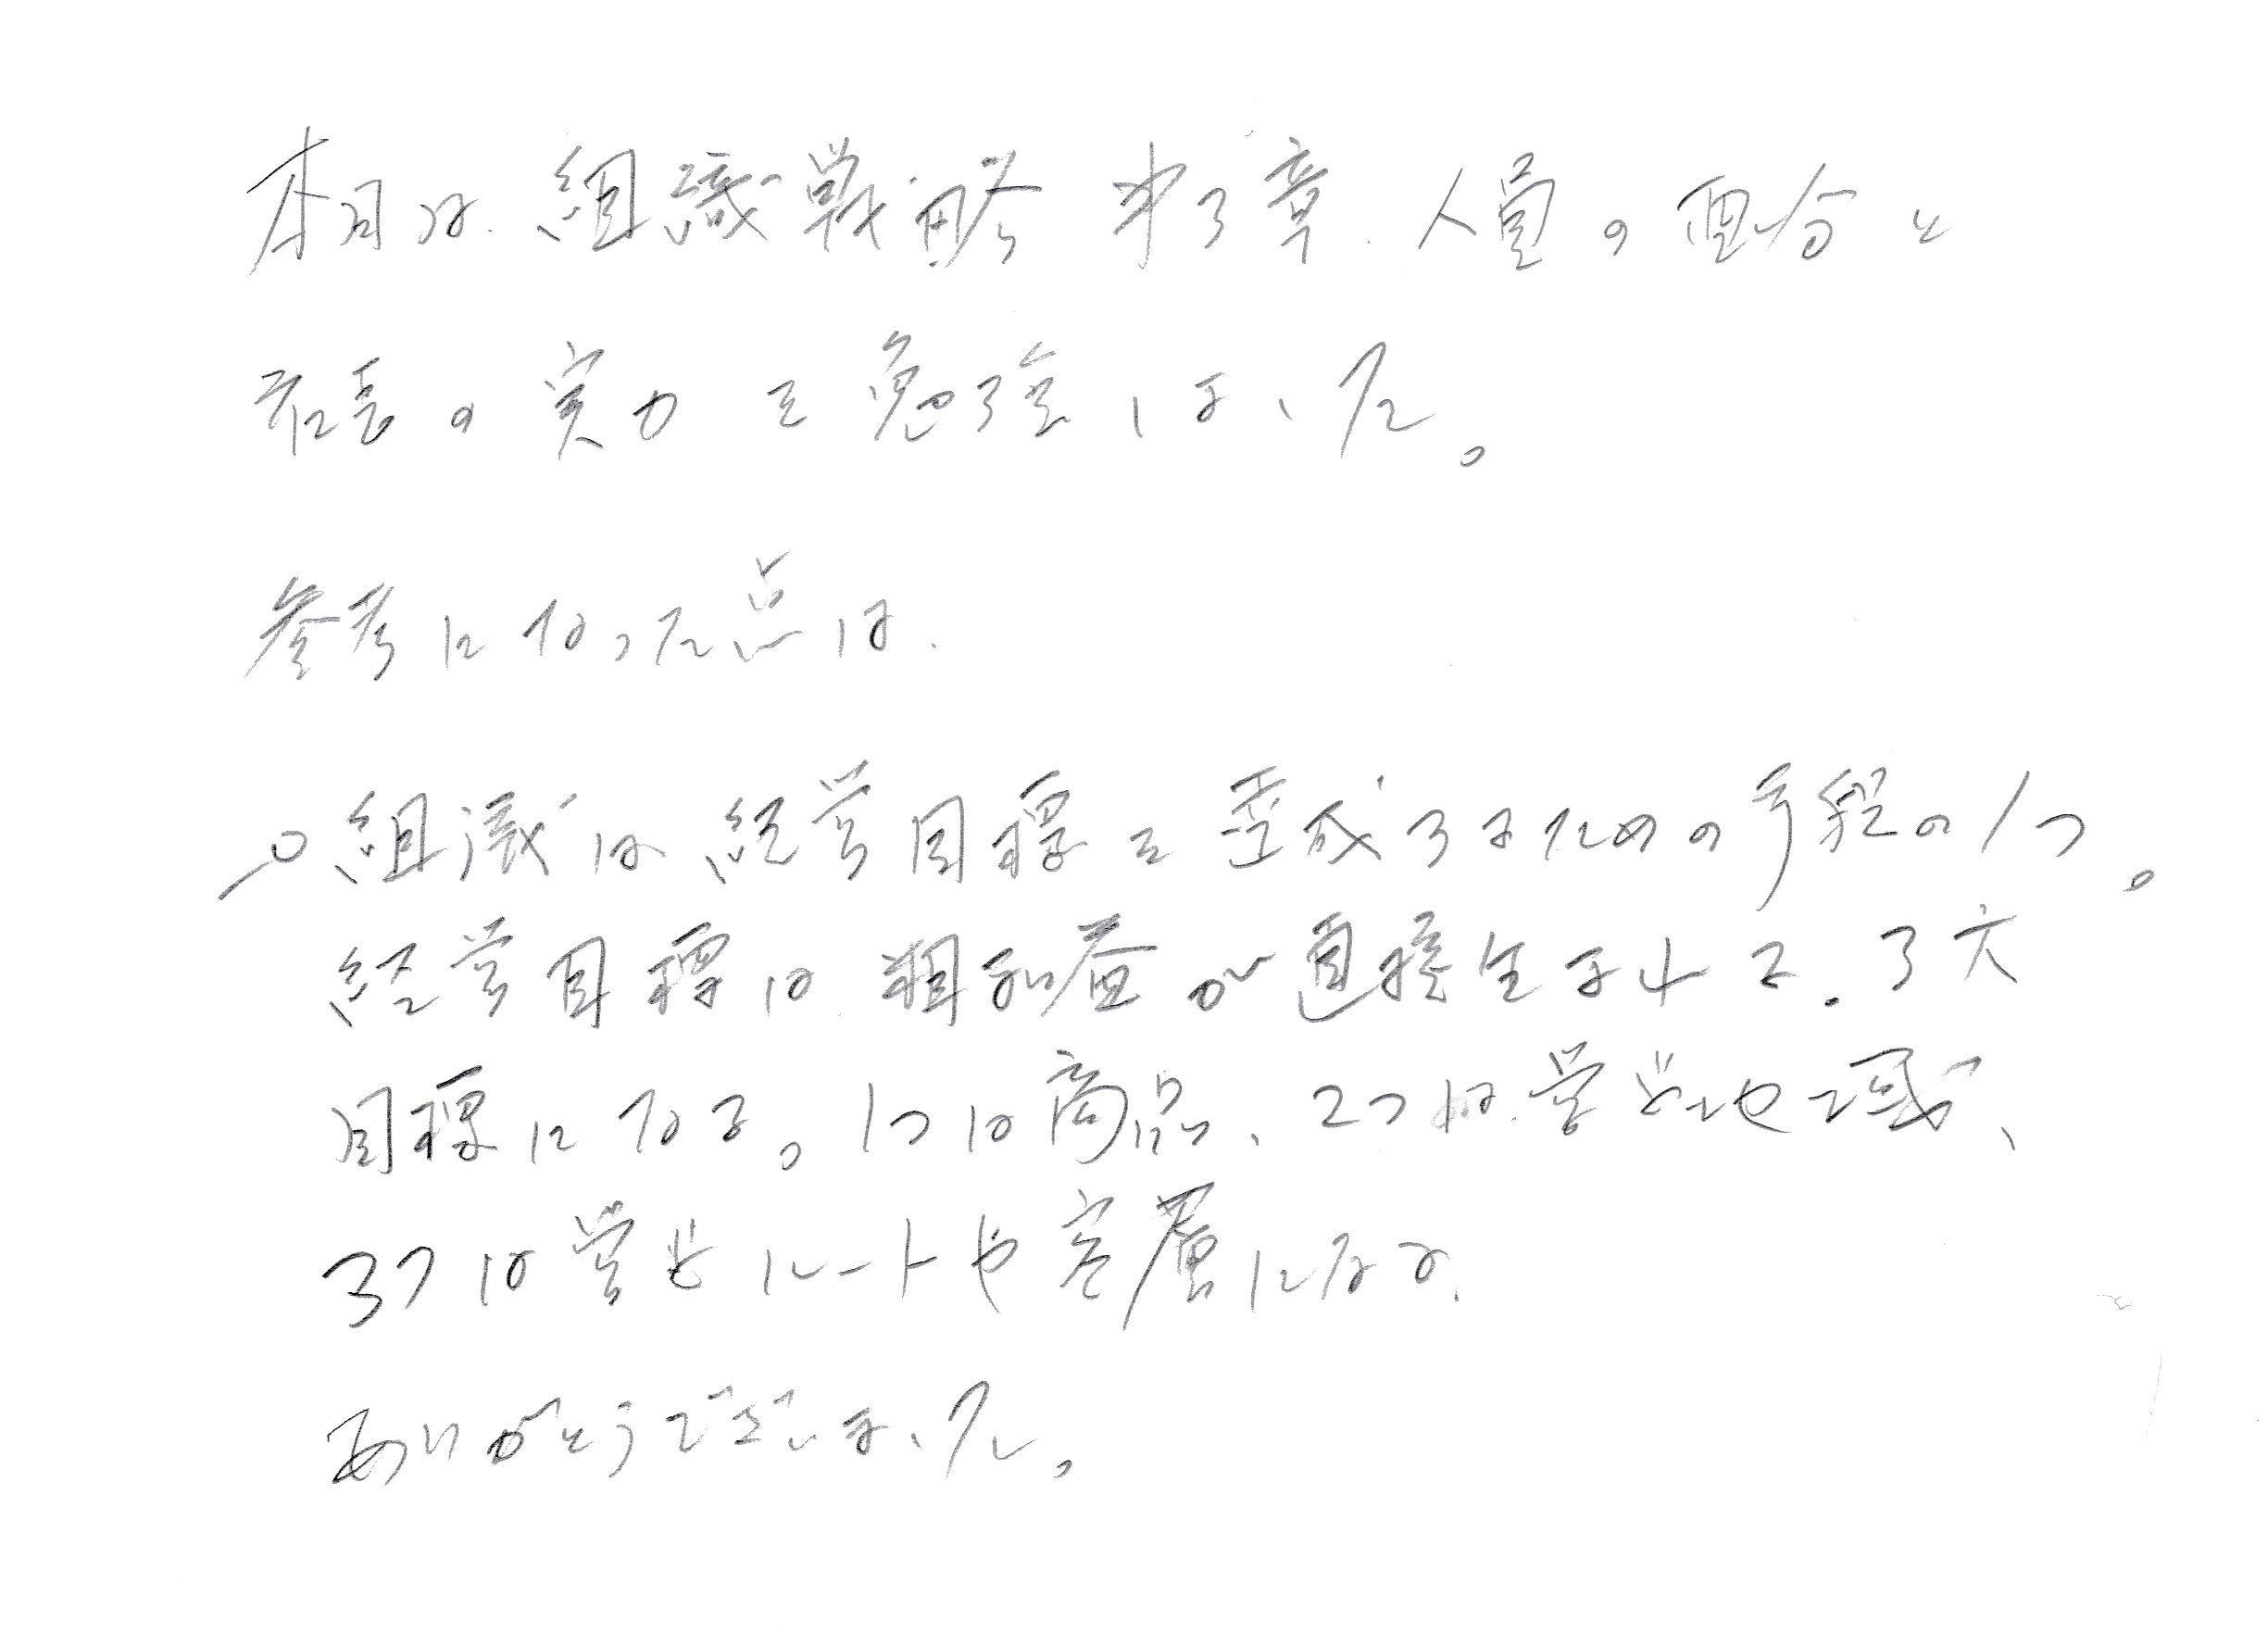 本日は、組織戦略 第3章、人員の配分と
社長の実力を勉強しました。
参考になった点は、
○組織は経営目標を達成するための手段の1つ。
経営目標は、粗利益が直接生まれる、3大
目標になる。1つは商品、2つは、営業地域、
3つは営業ルートや客層になる。
ありがとうございました。